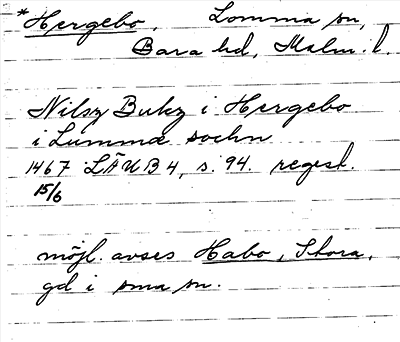 *Hergebo, Lomma sn,
Bara hd, Malm. l.
Nilsz Bukz i Hergebo
i Lummæ sochn
1467 LÄUB 4, s. 94. regest.
15/6
möjl. avses Habo, Stora,
gd i sma sn.